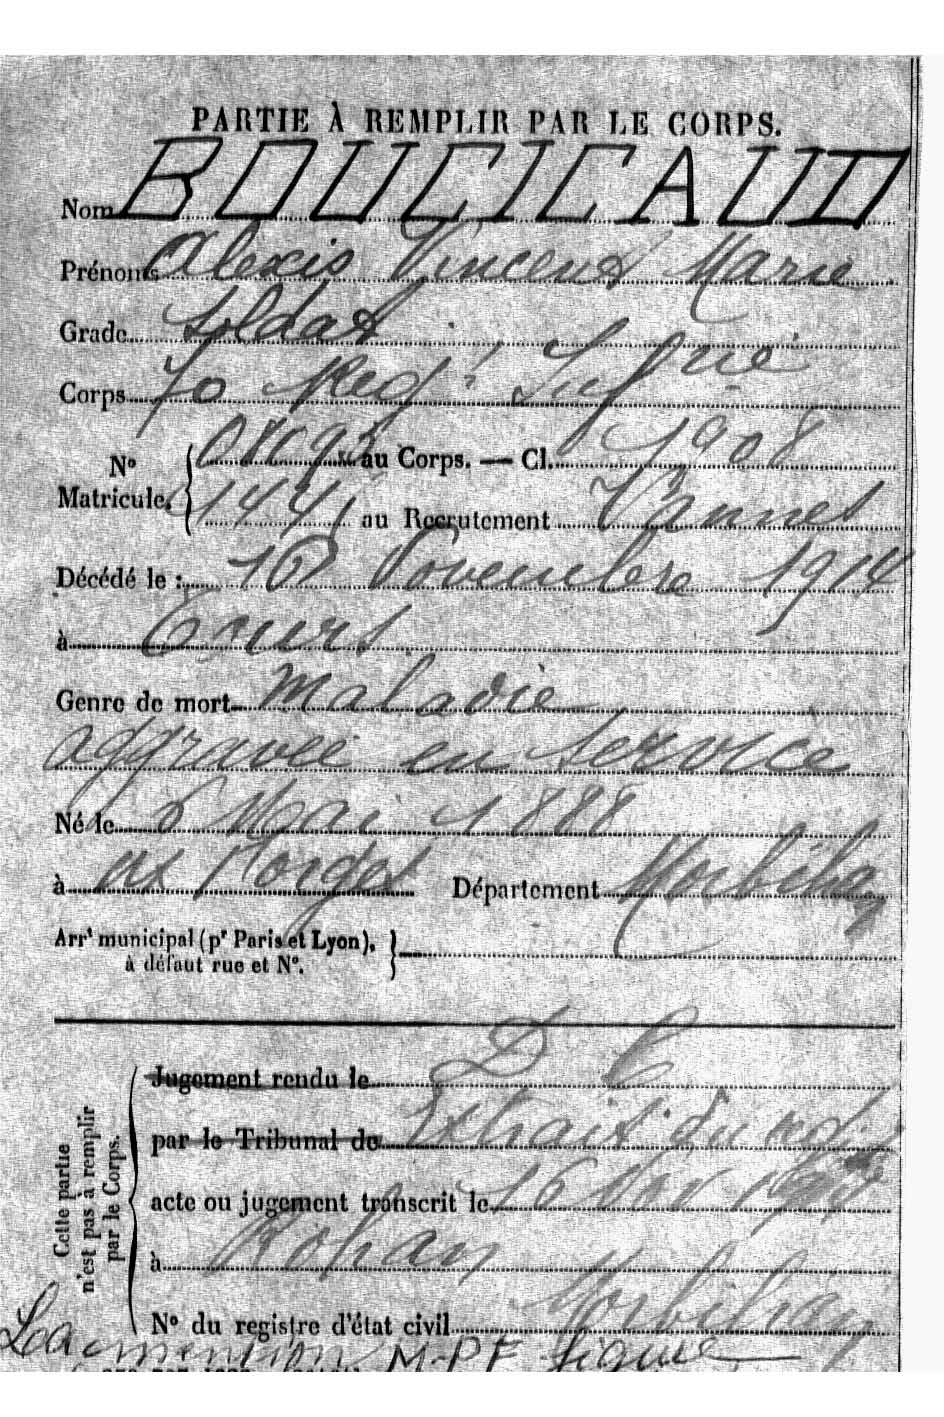 PARTIE À REMPLIR PAR LE CORPS.
Nom BOUCICAUD
Prénoms Alexis Vincent Marie
Grade Soldat
Corps 70 Reg^t Inf^rie
N° Matricule. au Corps. — Cl. 1908
1441 au Recrutement Vannes
Décédé le : 10 Novembre 1914
à Tours
Genre de mort Maladie
aggravée en service
Né le 6 Mai 1888
à Département Morbihan
Arr^t municipal (p^r Paris et Lyon),
à défaut rue et N°.
Cette partie
n'est pas à remplir
par le Corps.
Jugement rendu le D C
par le Tribunal de Extrait du
acte ou jugement transcrit le 16 Nov
à Rohan
N° du registre d'état civil Morbihan
La mention M.P.F